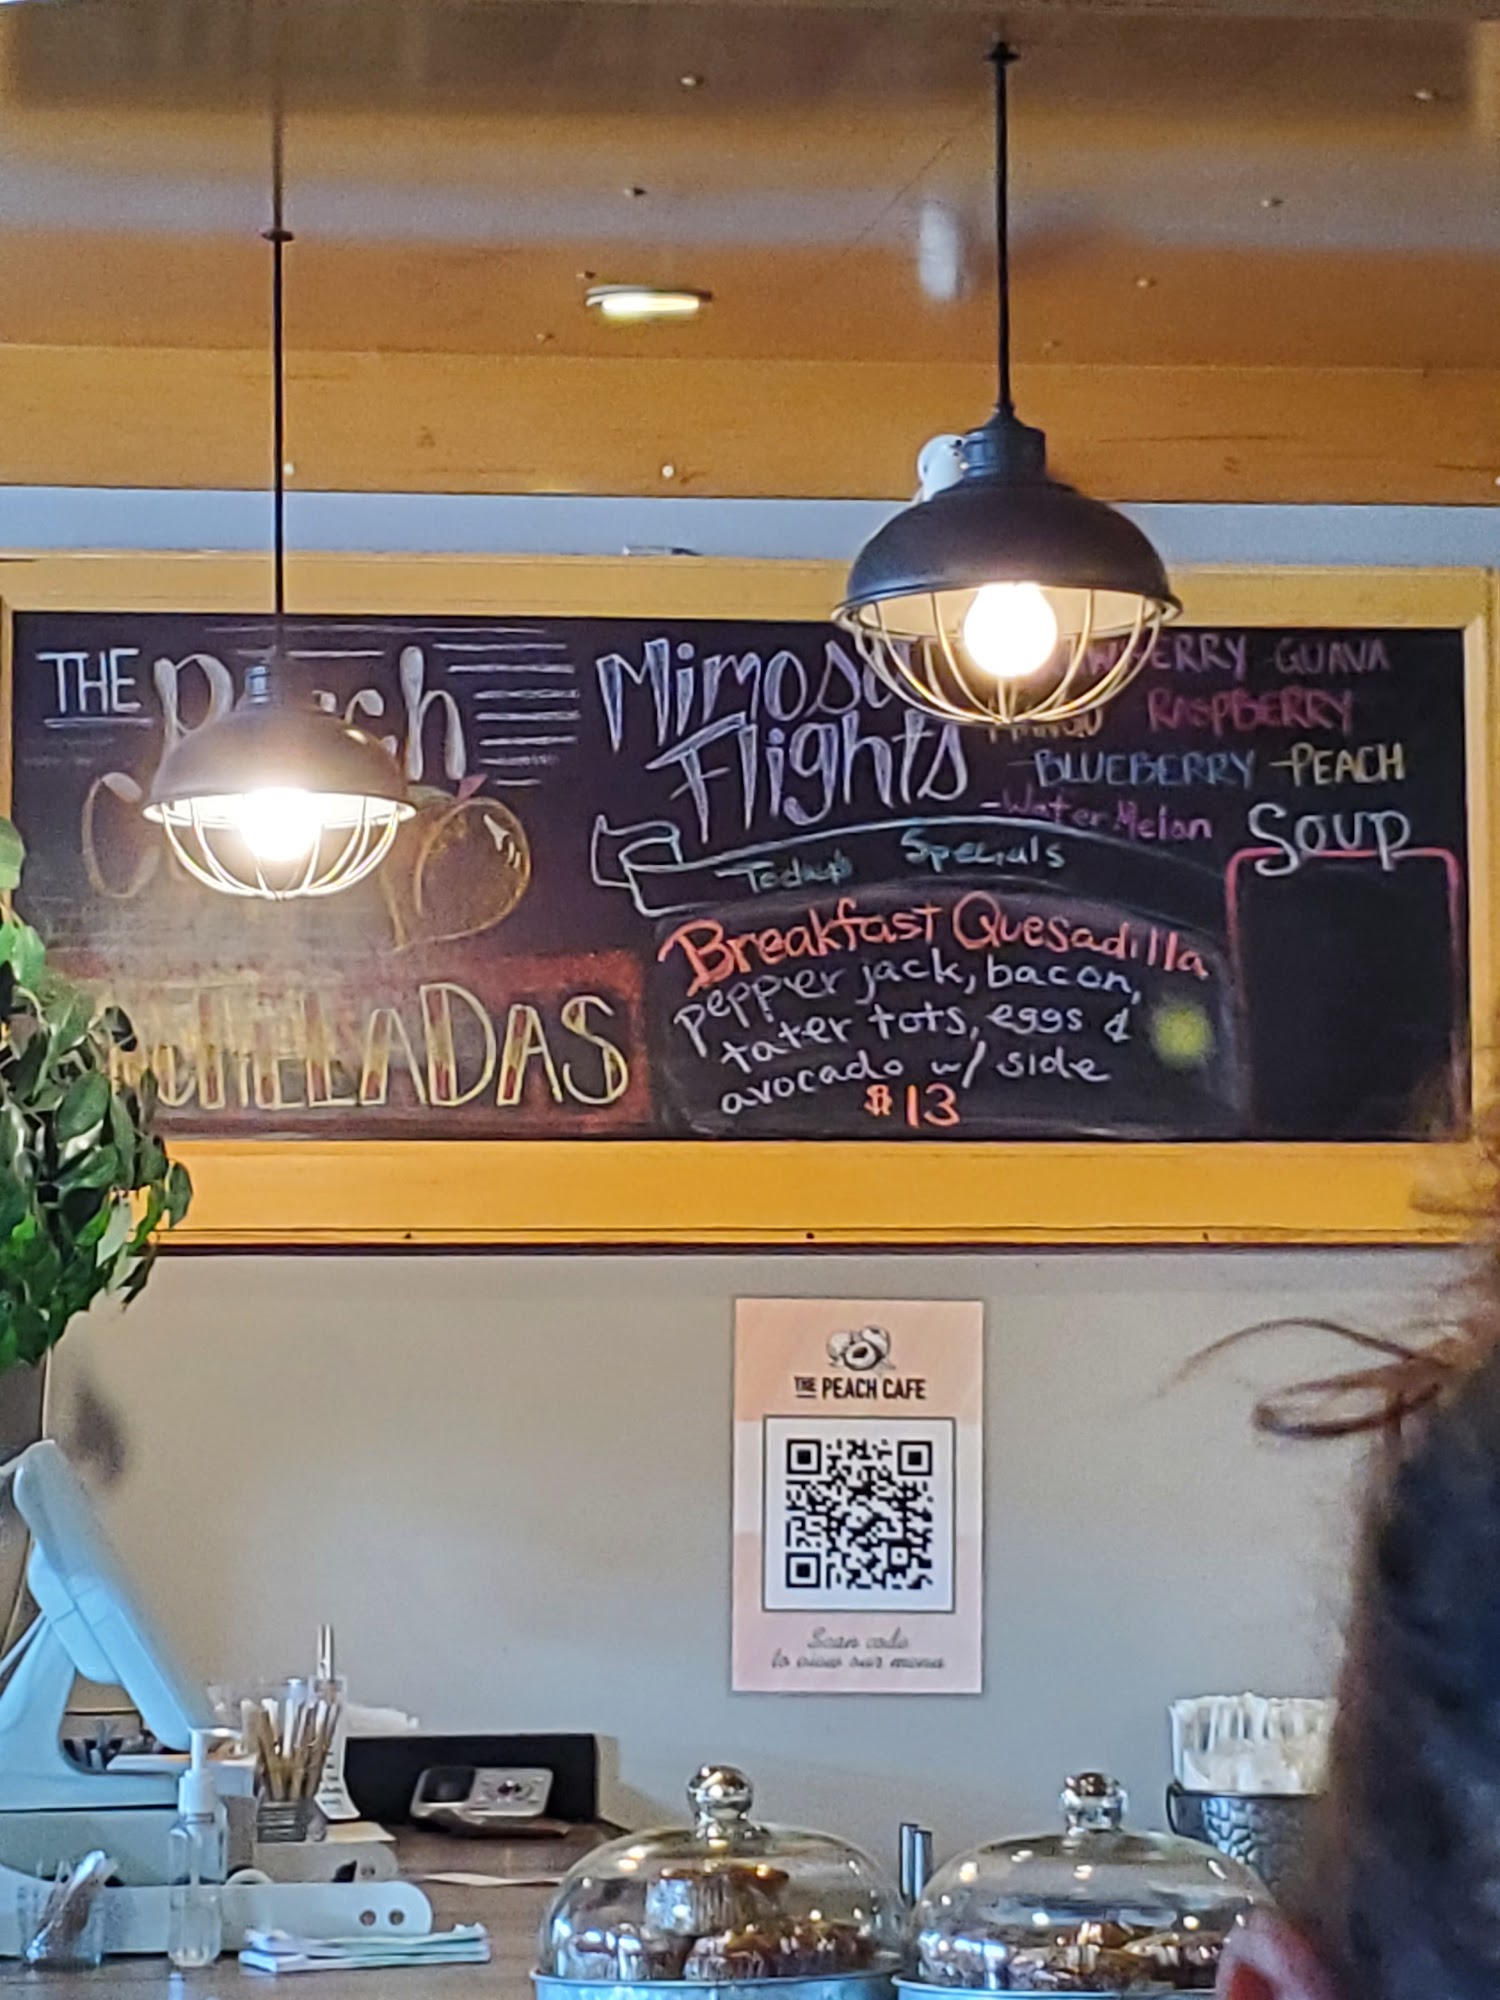 THE
Mimosa
Flights
GUAVA
RASPBERRY
-BLUEBERRY -PEACH
-WaterMelon
Soup
Today's Specials
Breakfast Quesadilla
pepper jack, bacon,
tater tots, eggs &
avocado w/ side
$13
THE PEACH CAFE
Scan code
to view our menu